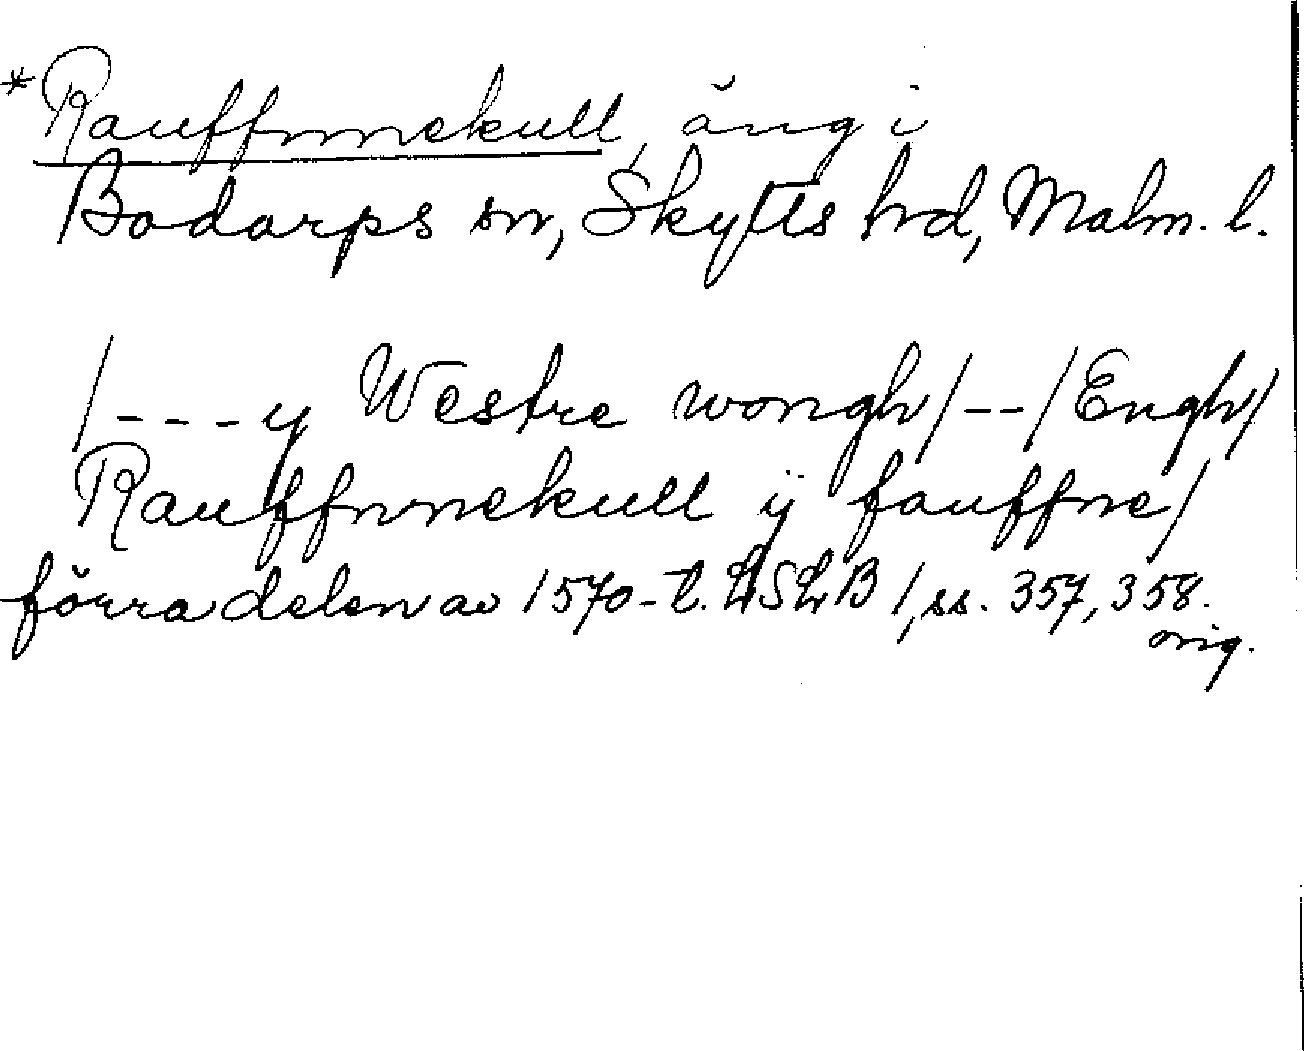 *Rauffnnekull, äng i
Bodarps sn, Skytts hrd, Malm. l.
/---y Westre wongh/--/Engh/
Rauffnnekull ÿ fauffne/
förra delen av 1570-t. LSLB 1, ss. 357, 358.
orig.